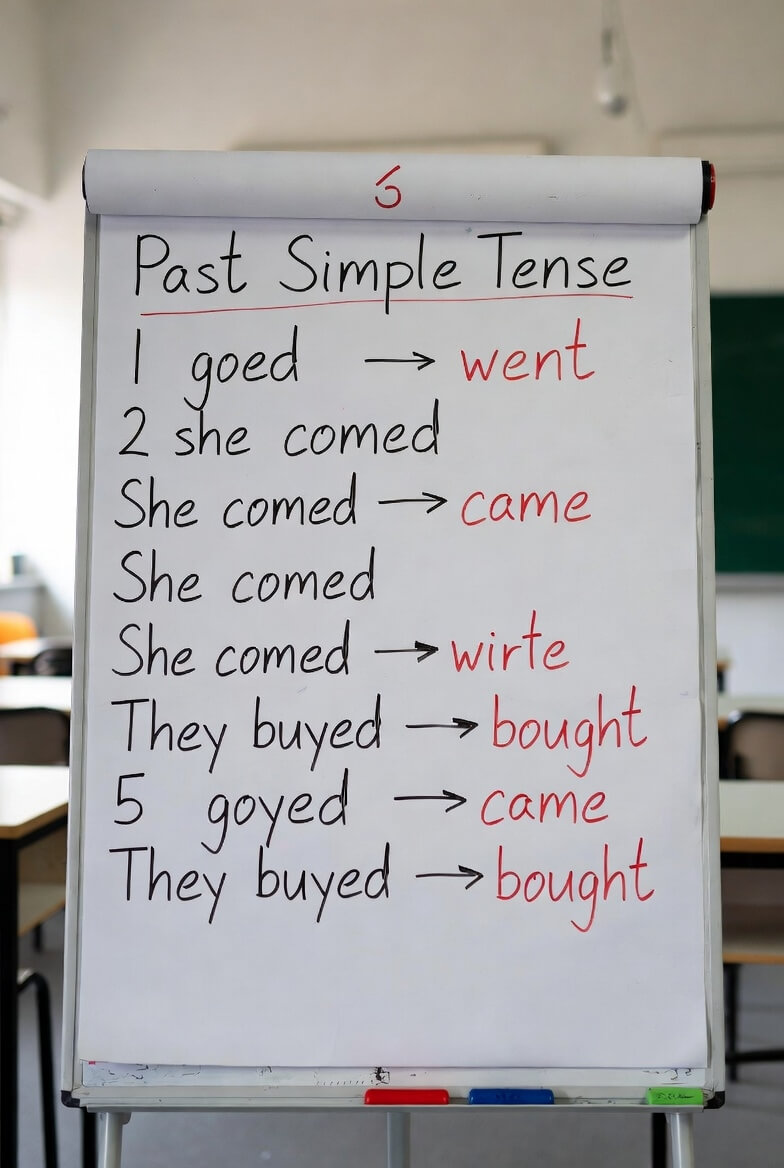 6
Past Simple Tense
1 goed → went
2 she comed
She comed → came
She comed
She comed → wirte
They buyed → bought
5 goyed → came
They buyed → bought